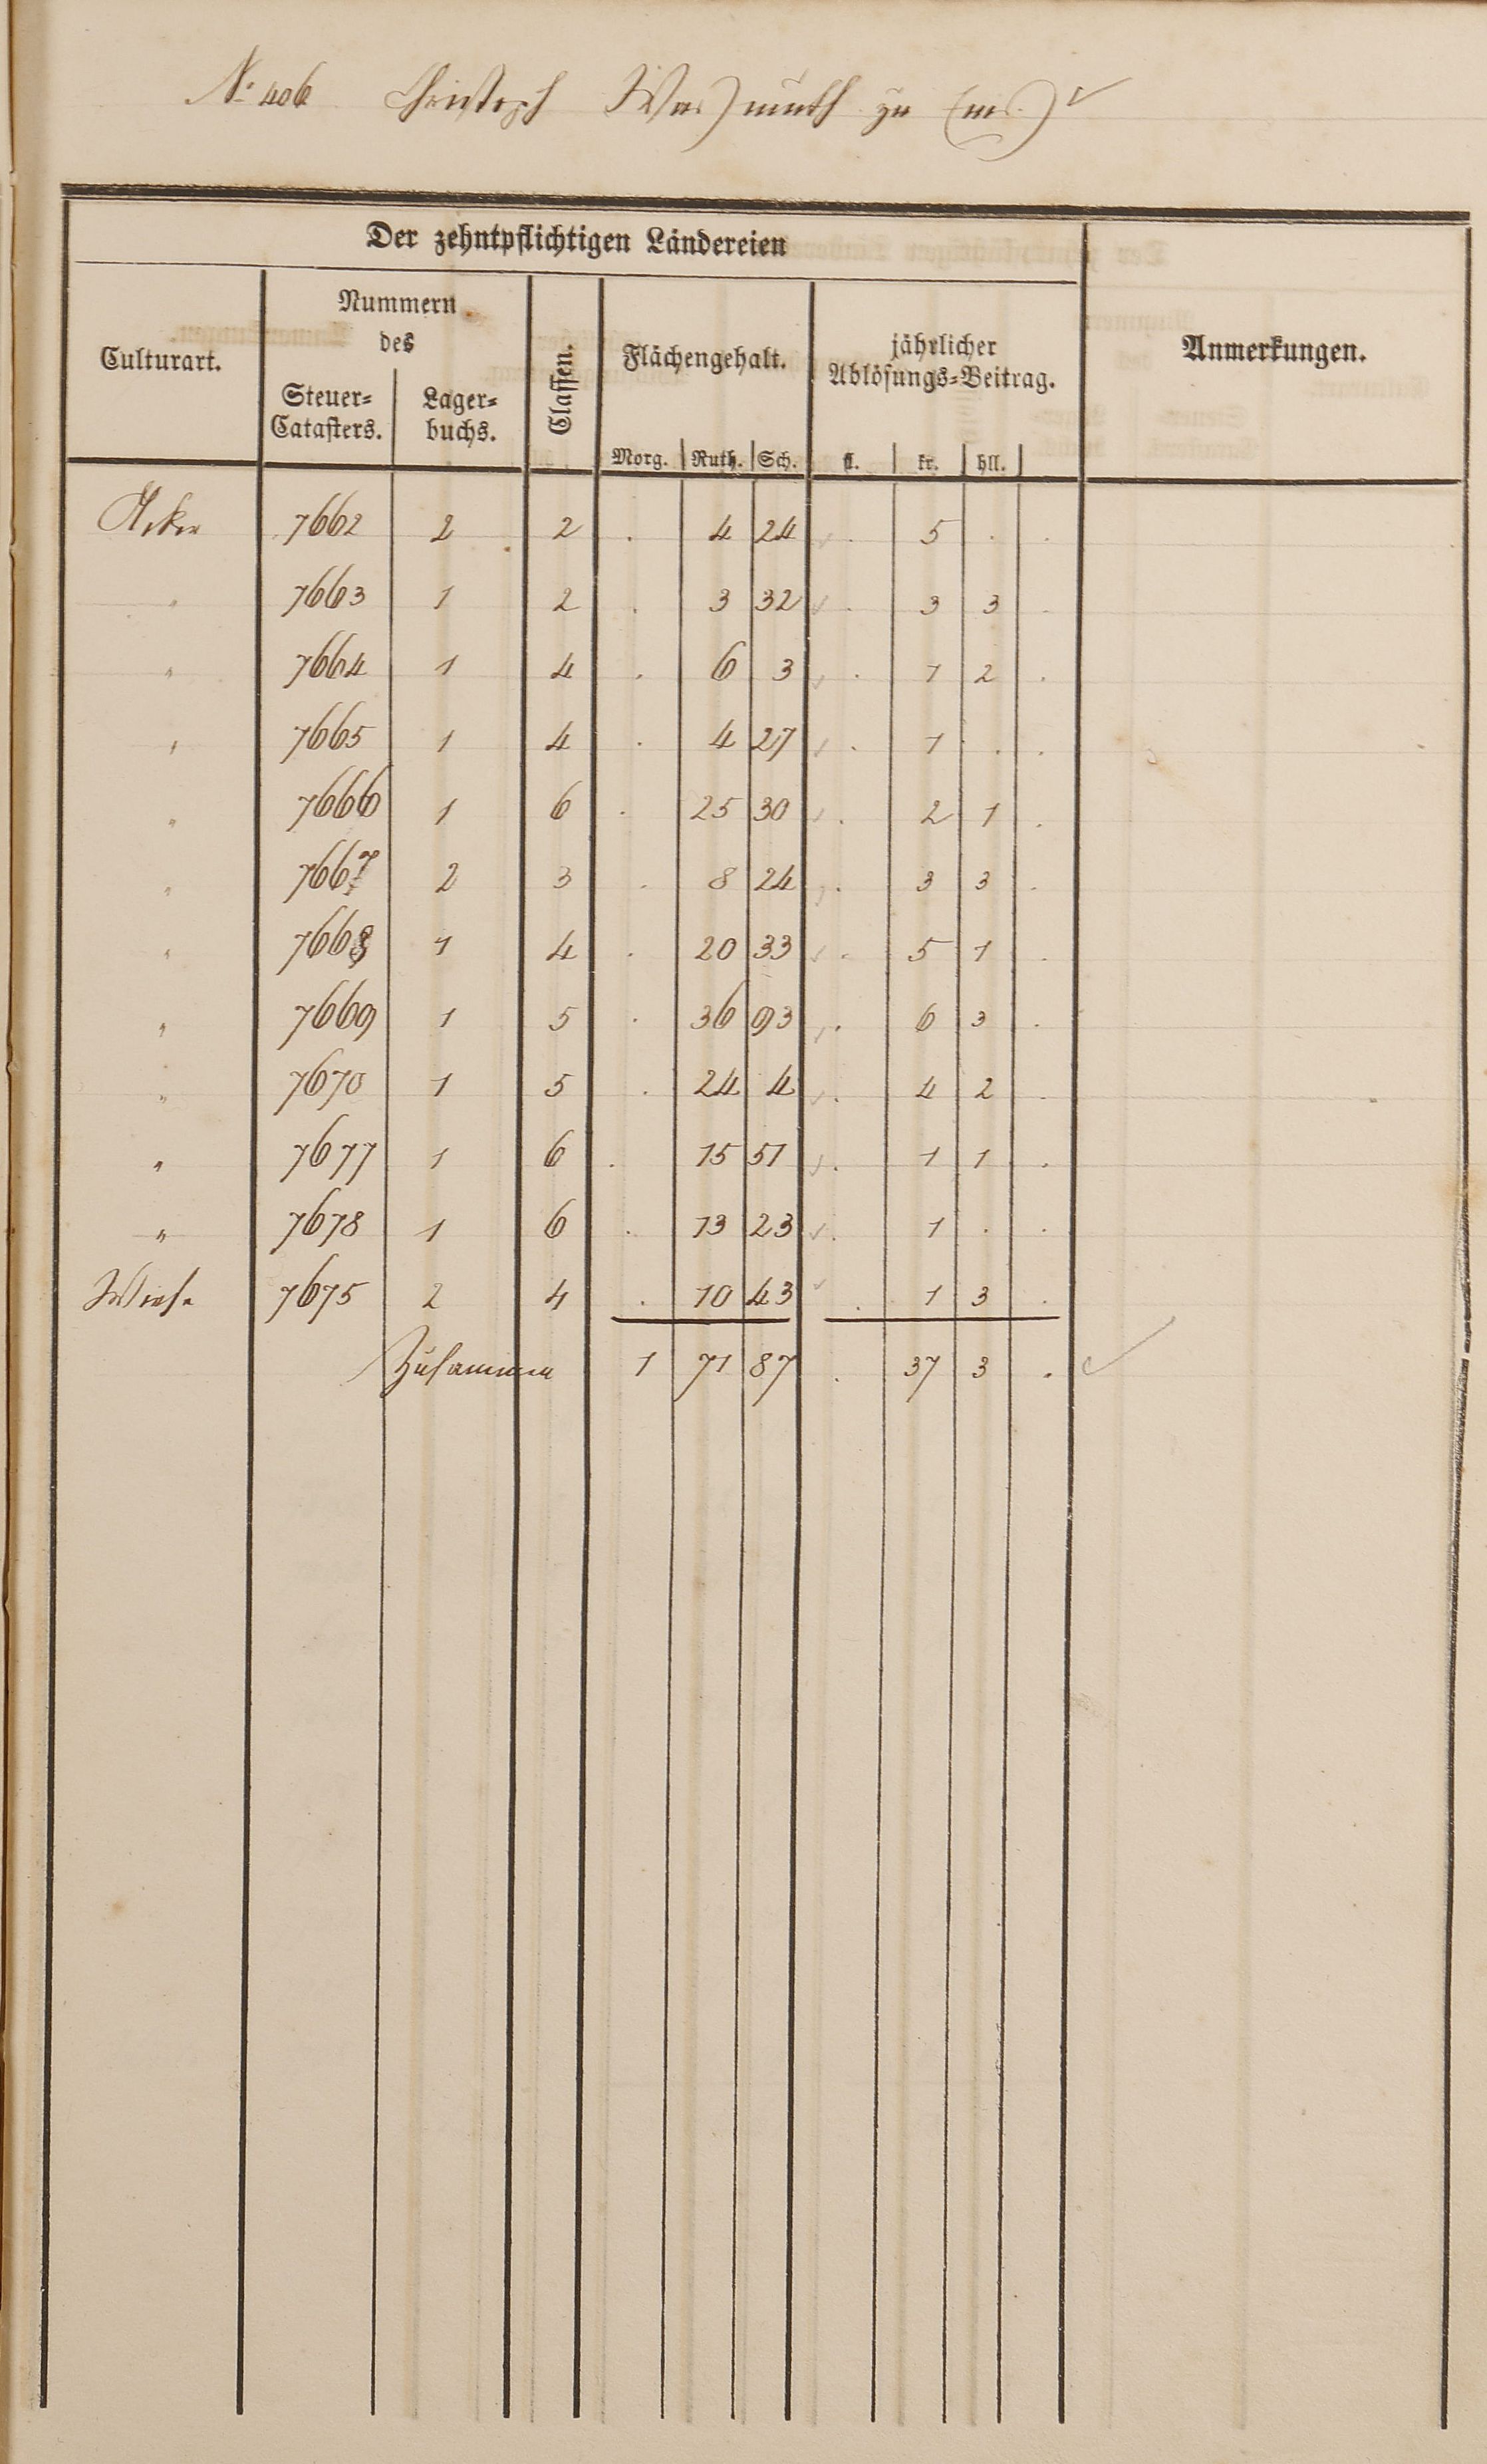 No 406 Christoph Wasmuth zu Ems
Der zehntpflichtigen Ländereien
Culturart. Nummern des Steuer=Catasters. Lager=buchs. Classen. Flächengehalt. jährlicher Ablösungs=Beitrag. Anmerkungen.
Morg. Ruth. Sch. fl. kr. hll.
Acker 7662 2 2 . 4 24 . 5 . .
" 7663 1 2 . 3 32 . 3 3 .
" 7664 1 4 . 6 3 . 1 2 .
" 7665 1 4 . 4 27 . 1 . .
" 7666 1 6 . 25 30 . 2 1 .
" 7667 2 3 . 8 24 . 3 3 .
" 7668 1 4 . 20 33 . 5 1 .
" 7669 1 5 . 36 93 . 6 3 .
" 7670 1 5 . 24 4 . 4 2 .
" 7677 1 6 . 15 51 . 1 1 .
" 7678 1 6 . 13 23 . 1 . .
Wiese 7675 2 4 . 10 43 . 1 3 .
Zusammen 1 71 87 . 37 3 .